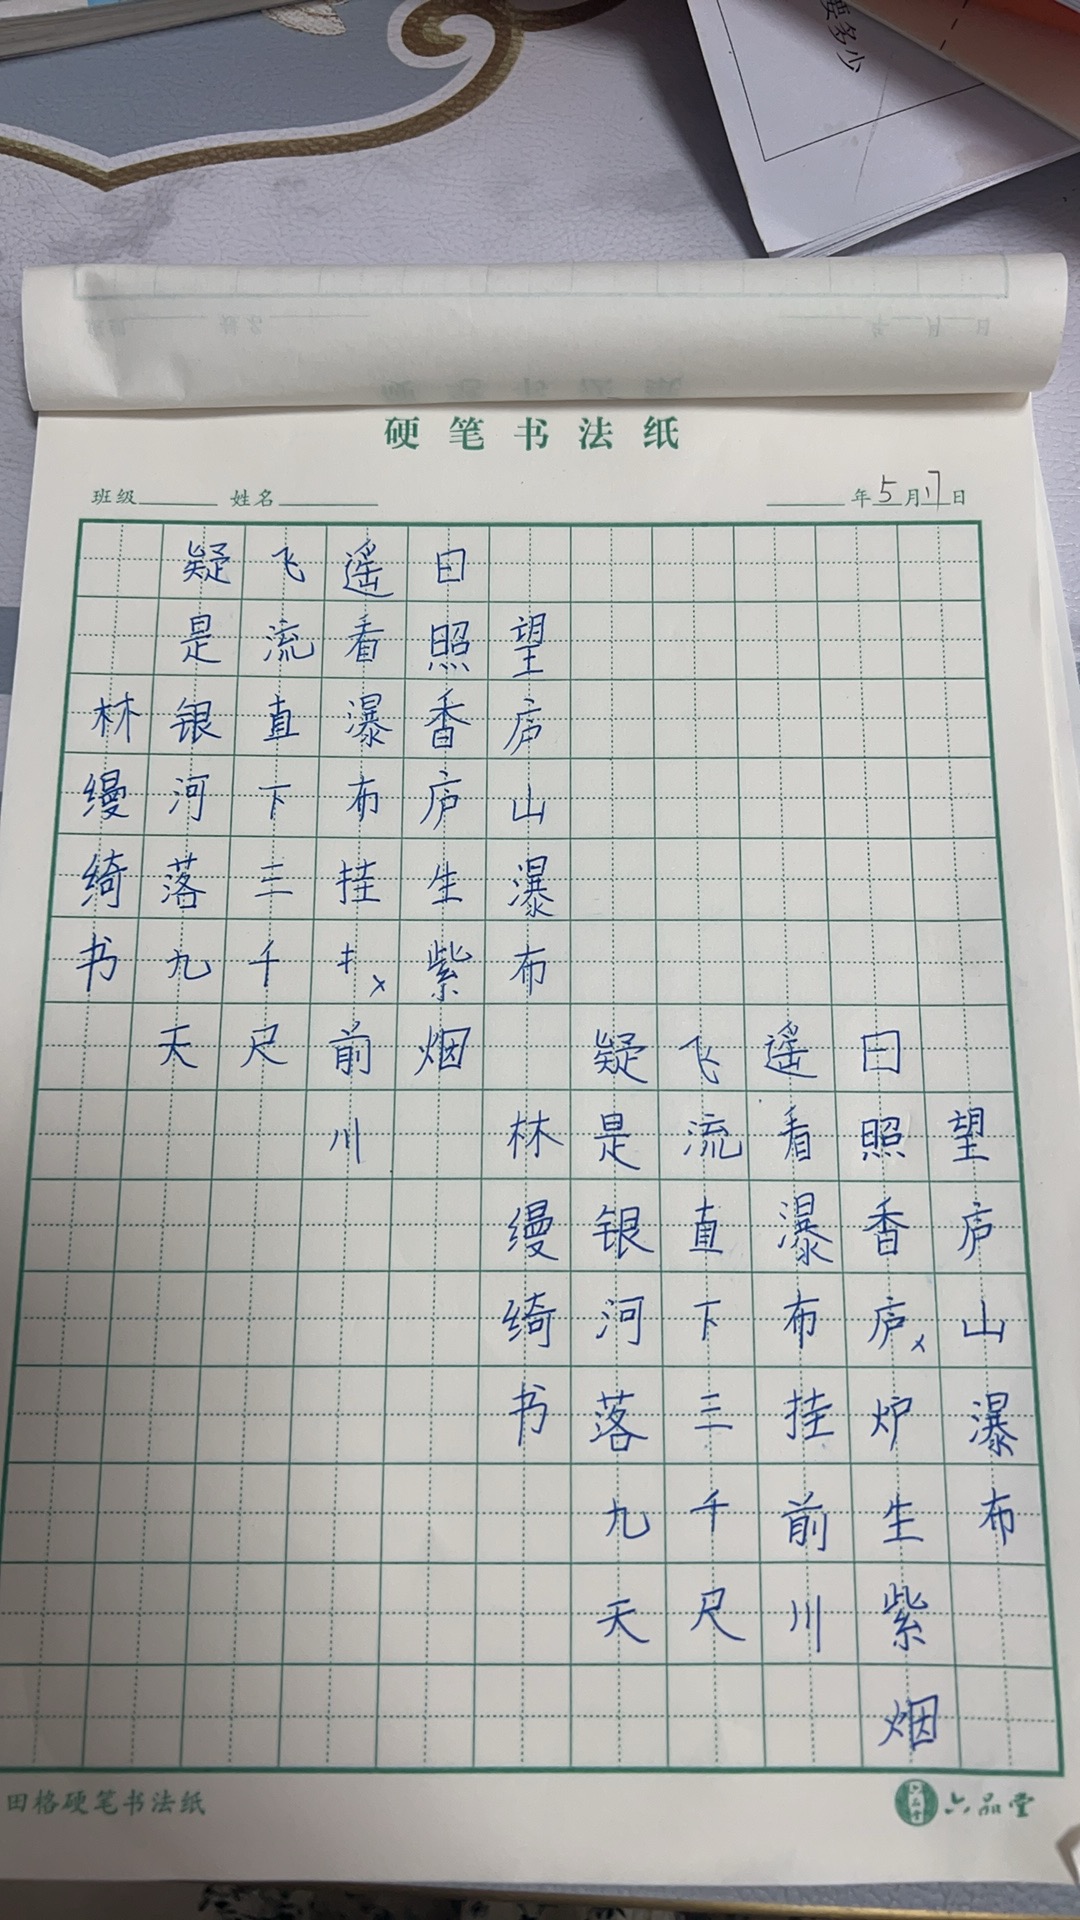 要多少
硬笔书法纸
班级 姓名 年5月17日
望庐山瀑布
日照香庐生紫烟
遥看瀑布挂扌x前川
飞流直下三千尺
疑是银河落九天
林缦绮书
望庐山瀑布
日照香庐x炉生紫烟
遥看瀑布挂前川
飞流直下三千尺
疑是银河落九天
林缦绮书
田格硬笔书法纸
六品堂